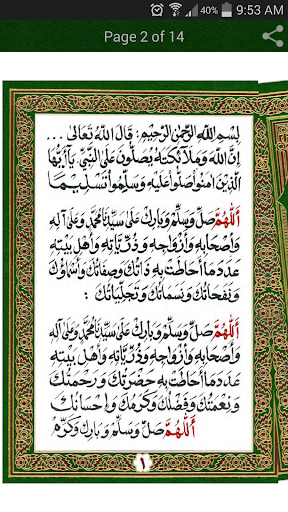 40% 9:53 AM
Page 2 of 14
بِسْمِ اللهِ الرَّحْمٰنِ الرَّحِيْمِ: قَالَ اللهُ تَعَالىٰ ...
إِنَّ اللهَ وَمَلَآئِكَتَهُ يُصَلُّونَ عَلَى النَّبِيِّ يَآأَيُّهَا
الَّذِيْنَ اٰمَنُوْا صَلُّوْا عَلَيْهِ وَسَلِّمُوْا تَسْلِيْمًا
اَللّٰهُمَّ صَلِّ وَسَلِّمْ وَبَارِكْ عَلىٰ سَيِّدِنَا مُحَمَّدٍ وَعَلىٰ آلِهِ
وَأَصْحَابِهِ وَأَزْوَاجِهِ وَذُرِّيَّاتِهِ وَأَهْلِ بَيْتِهِ
عَدَدَ مَا أَحَاطَتْ بِهِ ذَاتُكَ وَصِفَاتُكَ وَأَسْمَاؤُكَ
وَنَفَحَاتُكَ وَنَسَمَاتُكَ وَتَجَلِّيَاتُكَ :
اَللّٰهُمَّ صَلِّ وَسَلِّمْ وَبَارِكْ عَلىٰ سَيِّدِنَا مُحَمَّدٍ وَعَلىٰ آلِهِ
وَأَصْحَابِهِ وَأَزْوَاجِهِ وَذُرِّيَّاتِهِ وَأَهْلِ بَيْتِهِ
عَدَدَ مَا أَحَاطَتْ بِهِ حَضَرَتُكَ وَرَحْمَتُكَ
وَنِعْمَتُكَ وَفَضْلُكَ وَكَرَمُكَ وَإِحْسَانُكَ
اَللّٰهُمَّ صَلِّ وَسَلِّمْ وَبَارِكْ وَكَرِّمْ
١